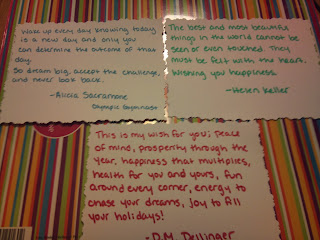 Wake up every day knowing today
is a new day and only you
can determine the outcome of that
day.
So dream big, accept the challenge,
and never look back.
-Alicia Sacramone
Olympic Gymnast
The best and most beautiful
things in the world cannot be
seen or even touched. They
must be felt with the heart.
Wishing you happiness.
-Helen Keller
This is my wish for you: peace
of mind, prosperity through the
year, happiness that multiplies,
health for you and yours, fun
around every corner, energy to
chase your dreams, joy to fill
your holidays!
-D.M. Dellinger